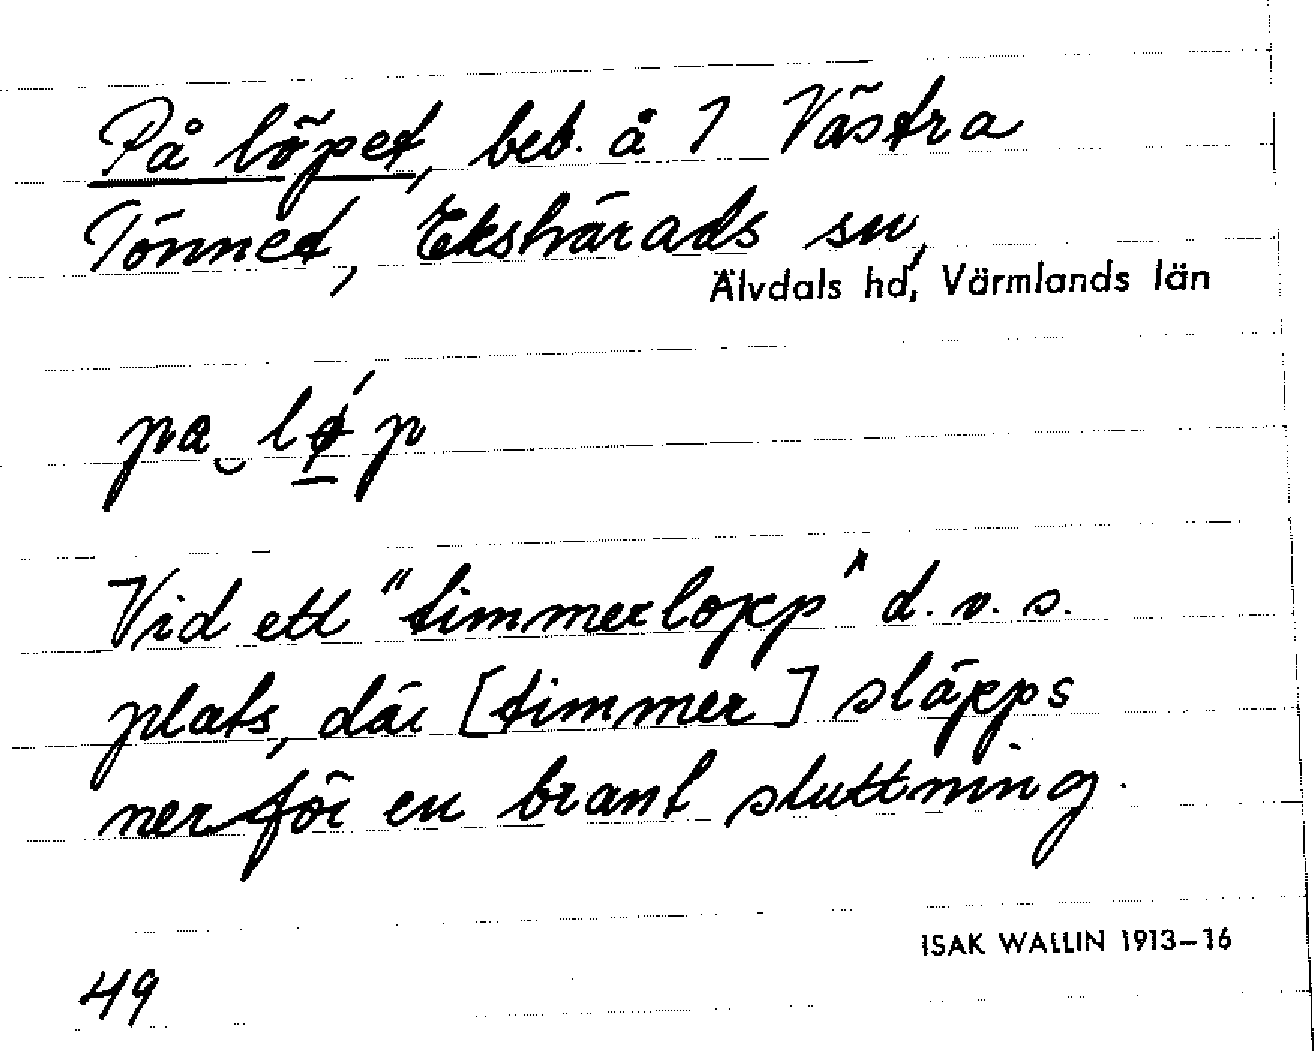 På löpet, beb. å 7 Västra
Tönnet, Ekshärads sn,
Älvdals hd, Värmlands län
pa‿lǿ̱p
Vid ett "timmerlopp" d.v.s.
plats, där [timmer] släpps
ner för en brant sluttning.
ISAK WALLIN 1913–16
49